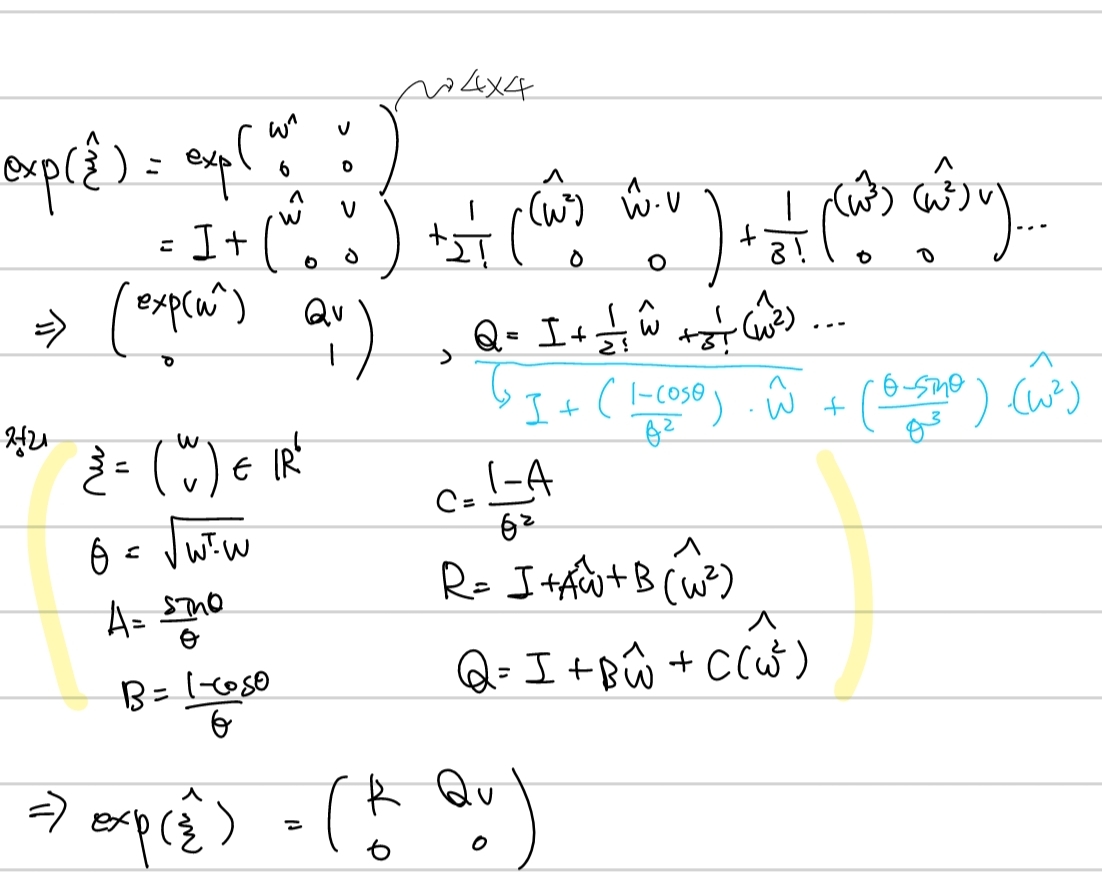 → 4×4
exp(ξ^) = exp( w^ v ; 0 0 )
= I + ( ŵ v ; 0 0 ) + 1/2! ( (w²)^ ŵ·v ; 0 0 ) + 1/3! ( (w³)^ (w²)^v ; 0 0 ) ...
⇒ ( exp(w^) Qv ; 0 1 ) , Q = I + 1/2! ŵ + 1/3! (w²)^ ...
↳ I + ( (1-cosθ)/θ² ) · ŵ + ( (θ-sinθ)/θ³ ) · (w²)^
ξ = ( w ; v ) ∈ ℝ⁶
θ = √(wᵀ·w)
A = sinθ/θ
B = (1-cosθ)/θ
C = (1-A)/θ²
R = I + Aŵ + B(w²)^
Q = I + Bŵ + C(w²)^
⇒ exp(ξ^) = ( R Qv ; 0 0 )